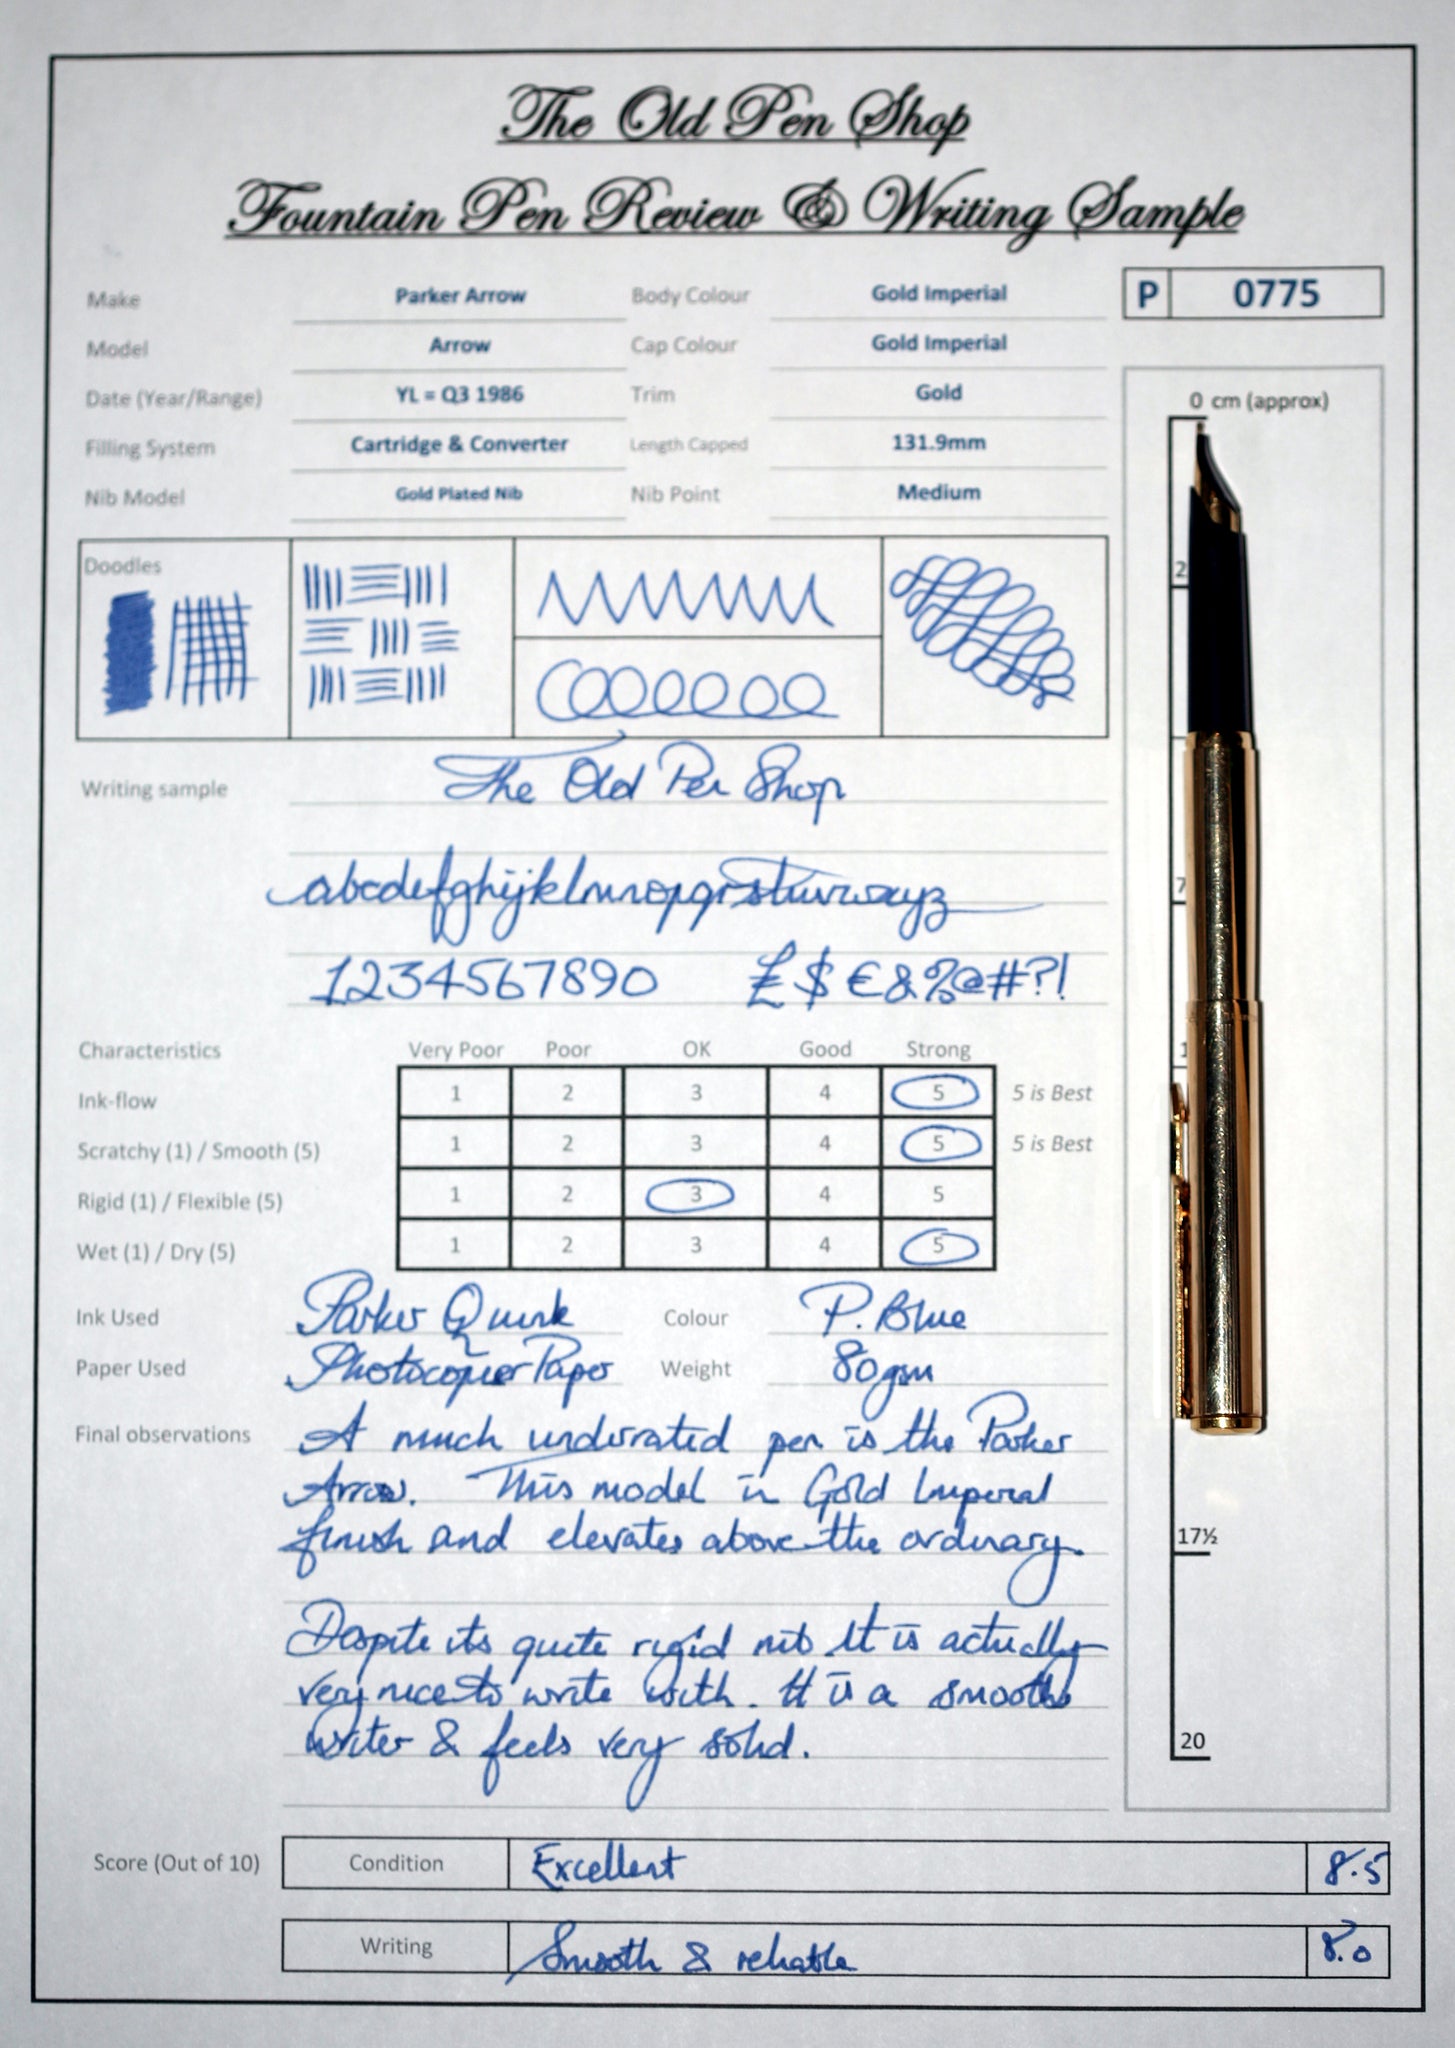 The Old Pen Shop
Fountain Pen Review & Writing Sample
Make Parker Arrow Body Colour Gold Imperial P 0775
Model Arrow Cap Colour Gold Imperial
Date (Year/Range) YL = Q3 1986 Trim Gold
Filling System Cartridge & Converter Length Capped 131.9mm
Nib Model Gold Plated Nib Nib Point Medium
0 cm (approx)
2
Doodles
Writing sample The Old Pen Shop
7
abcdefghijklmnopqrstuvwxyz
1234567890 £$€&%@#?!
1
Characteristics Very Poor Poor OK Good Strong
Ink-flow 1 2 3 4 5 5 is Best
Scratchy (1) / Smooth (5) 1 2 3 4 5 5 is Best
Rigid (1) / Flexible (5) 1 2 3 4 5
Wet (1) / Dry (5) 1 2 3 4 5
Ink Used Parker Quink Colour P. Blue
Paper Used Photocopier Paper Weight 80gsm
Final observations A much underrated pen is the Parker
Arrow. This model in Gold Imperial
finish and elevates above the ordinary.
17½
Despite its quite rigid nib it is actually
very nice to write with. It is a smooth
writer & feels very solid.
20
Score (Out of 10) Condition Excellent 8.5
Writing Smooth & reliable 8.0